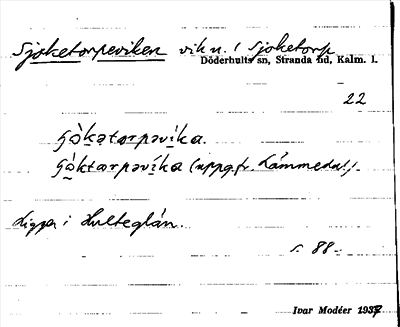 Sjoketorpeviken vik n. i Sjoketorp
Döderhults sn, Stranda hd, Kalm. l.
22
ʃò̱ka̱tɔrpəvi̱ka.
ʃò̱ktarpəvíka (uppg. fr. Lämmedal).
Ligger i Hulteglän.
s. 88.
Ivar Modéer 1937